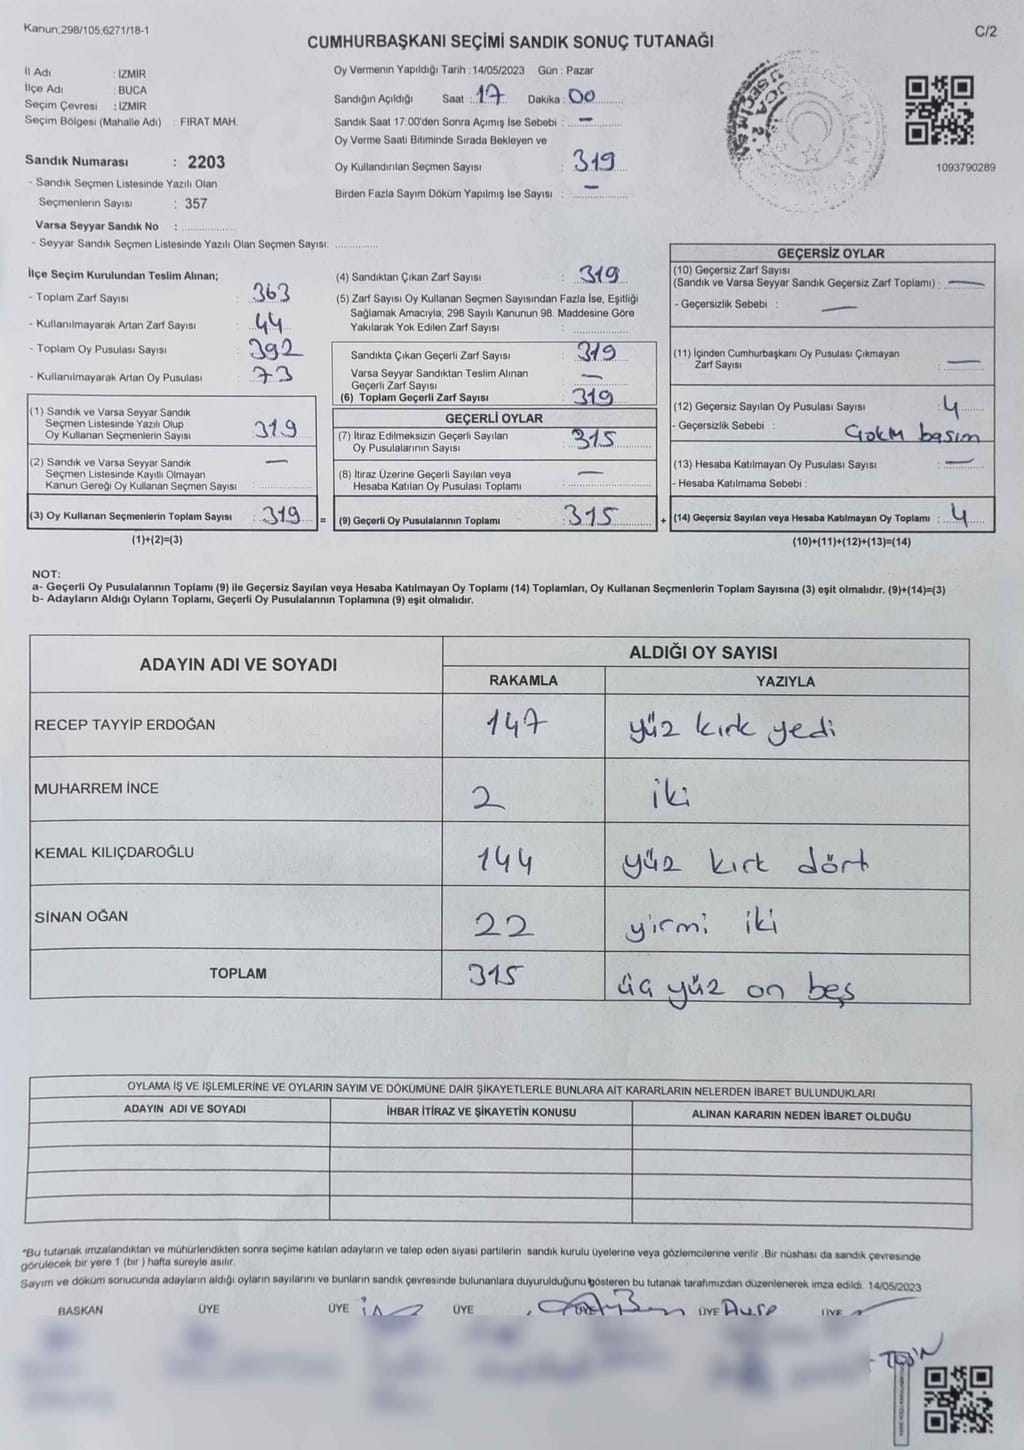 Kanun;298/105;6271/18-1
C/2
CUMHURBAŞKANI SEÇİMİ SANDIK SONUÇ TUTANAĞI
İl Adı : İZMİR
İlçe Adı : BUCA
Seçim Çevresi : İZMİR
Seçim Bölgesi (Mahalle Adı) : FIRAT MAH.
Sandık Numarası : 2203
- Sandık Seçmen Listesinde Yazılı Olan
Seçmenlerin Sayısı : 357
Varsa Seyyar Sandık No :
- Seyyar Sandık Seçmen Listesinde Yazılı Olan Seçmen Sayısı:
Oy Vermenin Yapıldığı Tarih : 14/05/2023 Gün : Pazar
Sandığın Açıldığı Saat : 17 Dakika : 00
Sandık Saat 17:00'den Sonra Açımış İse Sebebi : —
Oy Verme Saati Bitiminde Sırada Bekleyen ve
Oy Kullandırılan Seçmen Sayısı : 319
Birden Fazla Sayım Döküm Yapılmış İse Sayısı : —
1093790289
İlçe Seçim Kurulundan Teslim Alınan;
- Toplam Zarf Sayısı : 363
- Kullanılmayarak Artan Zarf Sayısı : 44
- Toplam Oy Pusulası Sayısı : 392
- Kullanılmayarak Artan Oy Pusulası : 73
(1) Sandık ve Varsa Seyyar Sandık
Seçmen Listesinde Yazılı Olup
Oy Kullanan Seçmenlerin Sayısı : 319
(2) Sandık ve Varsa Seyyar Sandık
Seçmen Listesinde Kayıtlı Olmayan
Kanun Gereği Oy Kullanan Seçmen Sayısı : —
(3) Oy Kullanan Seçmenlerin Toplam Sayısı : 319 =
(1)+(2)=(3)
(4) Sandıktan Çıkan Zarf Sayısı : 319
(5) Zarf Sayısı Oy Kullanan Seçmen Sayısından Fazla İse, Eşitliği
Sağlamak Amacıyla; 298 Sayılı Kanunun 98. Maddesine Göre
Yakılarak Yok Edilen Zarf Sayısı :
Sandıkta Çıkan Geçerli Zarf Sayısı : 319
Varsa Seyyar Sandıktan Teslim Alınan
Geçerli Zarf Sayısı : —
(6) Toplam Geçerli Zarf Sayısı : 319
GEÇERLİ OYLAR
(7) İtiraz Edilmeksizin Geçerli Sayılan
Oy Pusulalarının Sayısı : 315
(8) İtiraz Üzerine Geçerli Sayılan veya
Hesaba Katılan Oy Pusulası Toplamı : —
(9) Geçerli Oy Pusulalarının Toplamı : 315 +
GEÇERSİZ OYLAR
(10) Geçersiz Zarf Sayısı
(Sandık ve Varsa Seyyar Sandık Geçersiz Zarf Toplamı) : —
- Geçersizlik Sebebi : —
(11) İçinden Cumhurbaşkanı Oy Pusulası Çıkmayan
Zarf Sayısı : —
(12) Geçersiz Sayılan Oy Pusulası Sayısı : 4
- Geçersizlik Sebebi :
(13) Hesaba Katılmayan Oy Pusulası Sayısı : —
- Hesaba Katılmama Sebebi :
(14) Geçersiz Sayılan veya Hesaba Katılmayan Oy Toplamı : 4
(10)+(11)+(12)+(13)=(14)
NOT:
a- Geçerli Oy Pusulalarının Toplamı (9) ile Geçersiz Sayılan veya Hesaba Katılmayan Oy Toplamı (14) Toplamları, Oy Kullanan Seçmenlerin Toplam Sayısına (3) eşit olmalıdır. (9)+(14)=(3)
b- Adayların Aldığı Oyların Toplamı, Geçerli Oy Pusulalarının Toplamına (9) eşit olmalıdır.
ADAYIN ADI VE SOYADI
ALDIĞI OY SAYISI
RAKAMLA YAZIYLA
RECEP TAYYİP ERDOĞAN 147 yüz kırk yedi
MUHARREM İNCE 2 iki
KEMAL KILIÇDAROĞLU 144 yüz kırk dört
SİNAN OĞAN 22 yirmi iki
TOPLAM 315 üç yüz on beş
OYLAMA İŞ VE İŞLEMLERİNE VE OYLARIN SAYIM VE DÖKÜMÜNE DAİR ŞİKAYETLERLE BUNLARA AİT KARARLARIN NELERDEN İBARET BULUNDUKLARI
ADAYIN ADI VE SOYADI İHBAR İTİRAZ VE ŞİKAYETİN KONUSU ALINAN KARARIN NEDEN İBARET OLDUĞU
*Bu tutanak imzalandıktan ve mühürlendikten sonra seçime katılan adayların ve talep eden siyasi partilerin sandık kurulu üyelerine veya gözlemcilerine verilir .Bir nüshası da sandık çevresinde
görülecek bir yere 1 (bir ) hafta süreyle asılır.
Sayım ve döküm sonucunda adayların aldığı oyların sayılarını ve bunların sandık çevresinde bulunanlara duyurulduğunu gösteren bu tutanak tarafımızdan düzenlenerek imza edildi. 14/05/2023
BAŞKAN ÜYE ÜYE ÜYE ÜYE ÜYE ÜYE